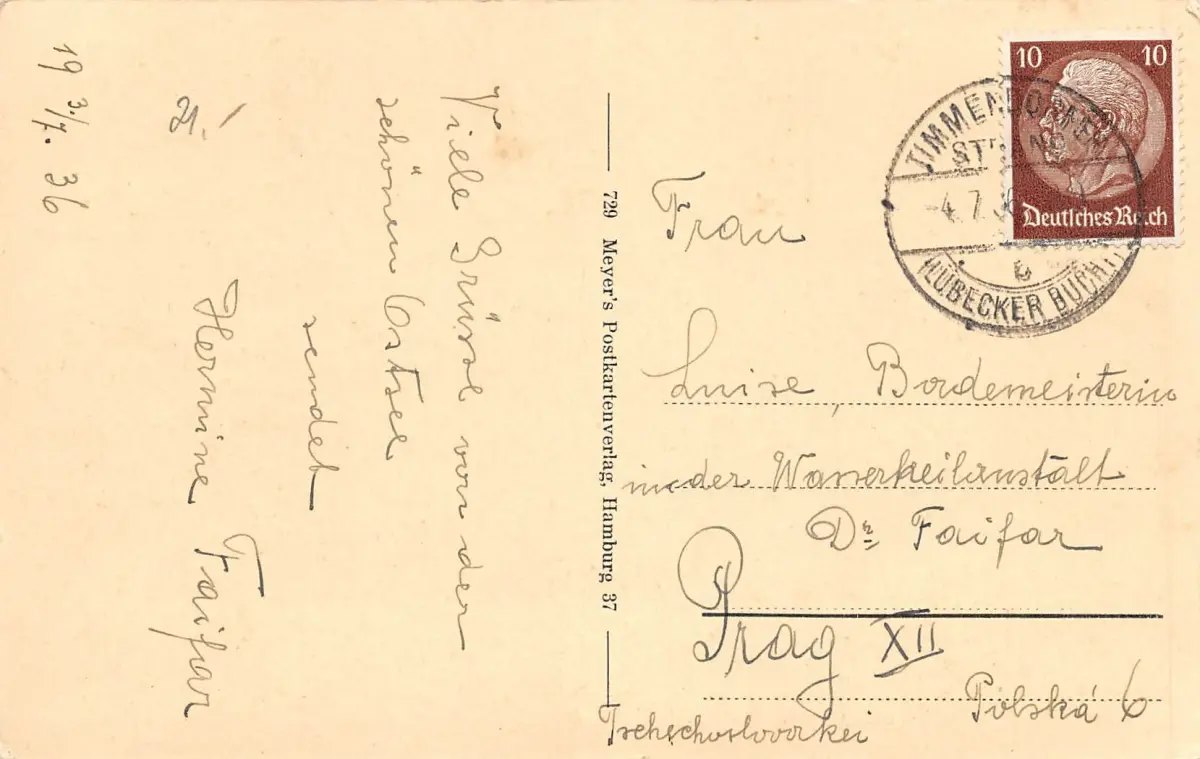 19 3./7. 36
Viele Grüsse von der
schönen Ostsee
sendet
Hermine Faifar
729 Meyer's Postkartenverlag, Hamburg 37
10 10
Deutsches Reich
TIMMENDORFER
STRAND
-4.7.36
b
(LÜBECKER BUCHT)
Frau
Luise, Bademeisterin
in der Wasserheilanstalt
Dr. Faifar
Prag XII
Polská 6
Tschechoslovakei